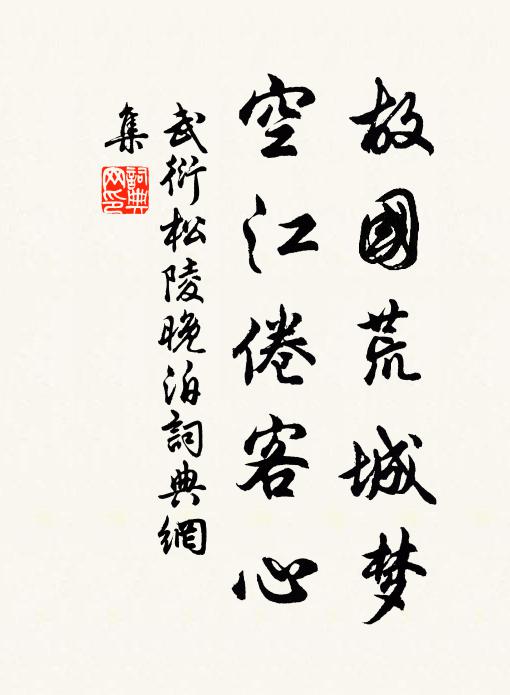 故國荒城梦
空江倦客心
武衍松陵晚泊詞典網
集
詞典网印